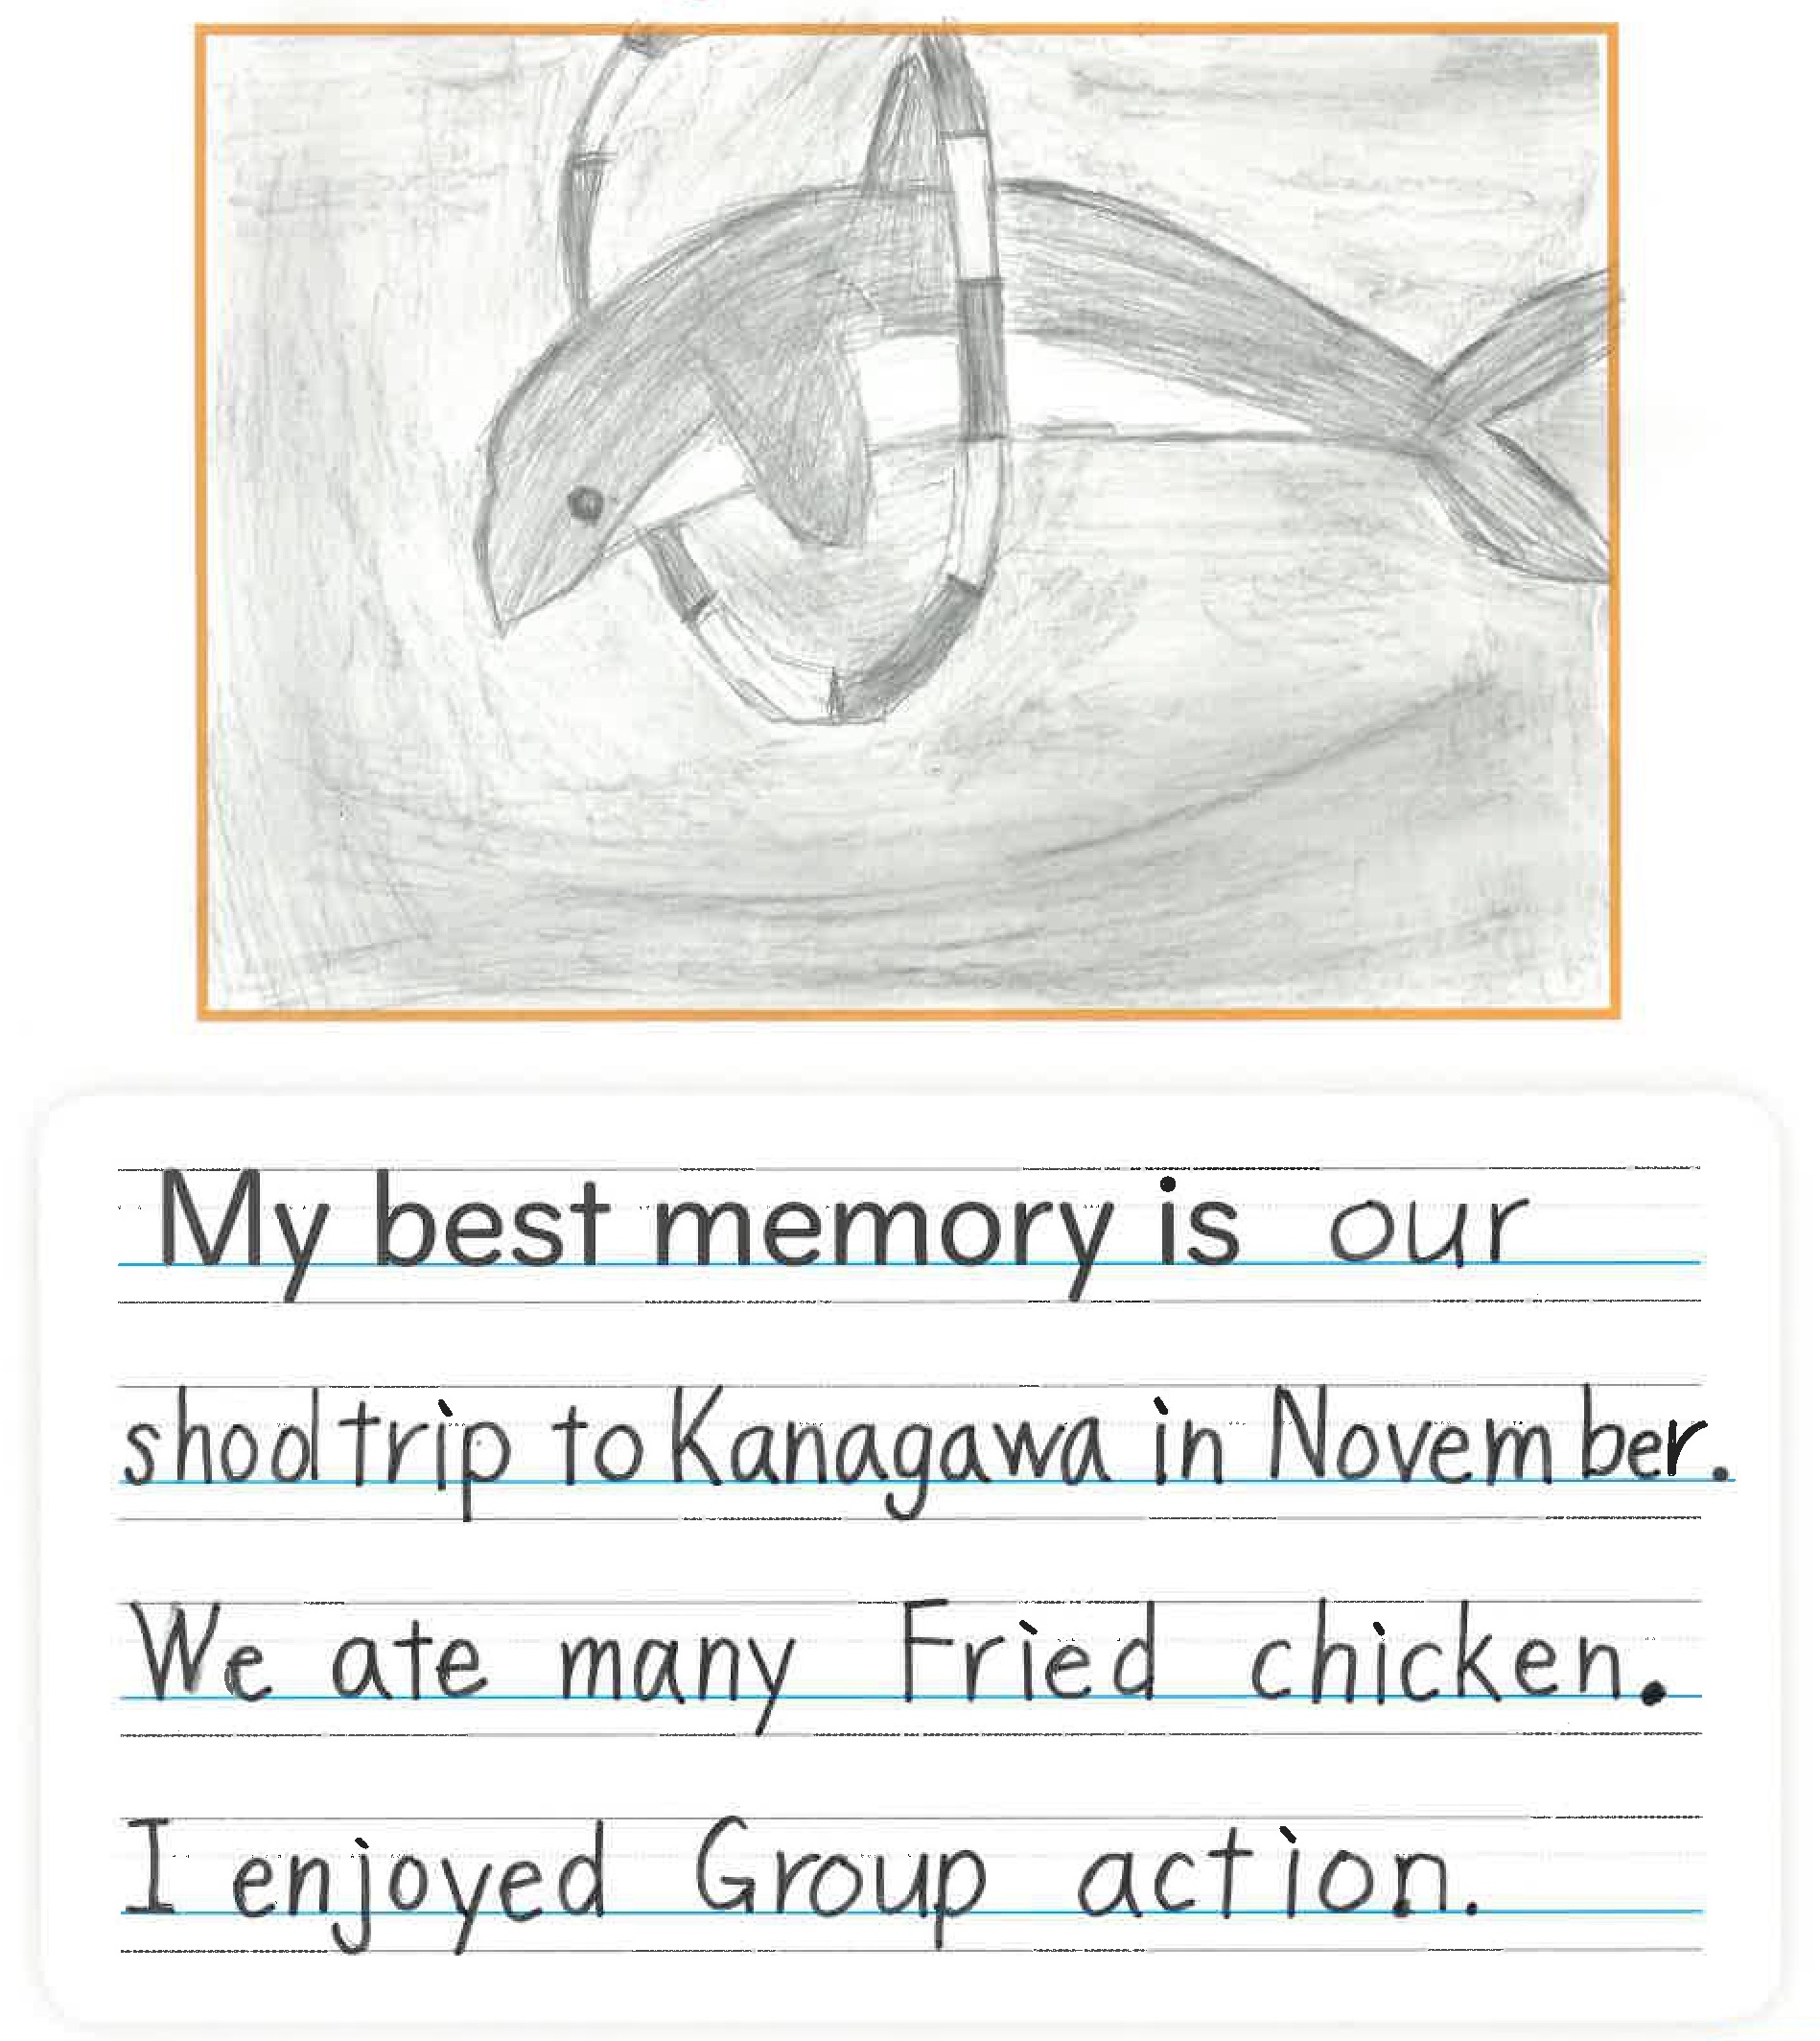 My best memory is our
shool trip to Kanagawa in November.
We ate many Fried chicken.
I enjoyed Group action.